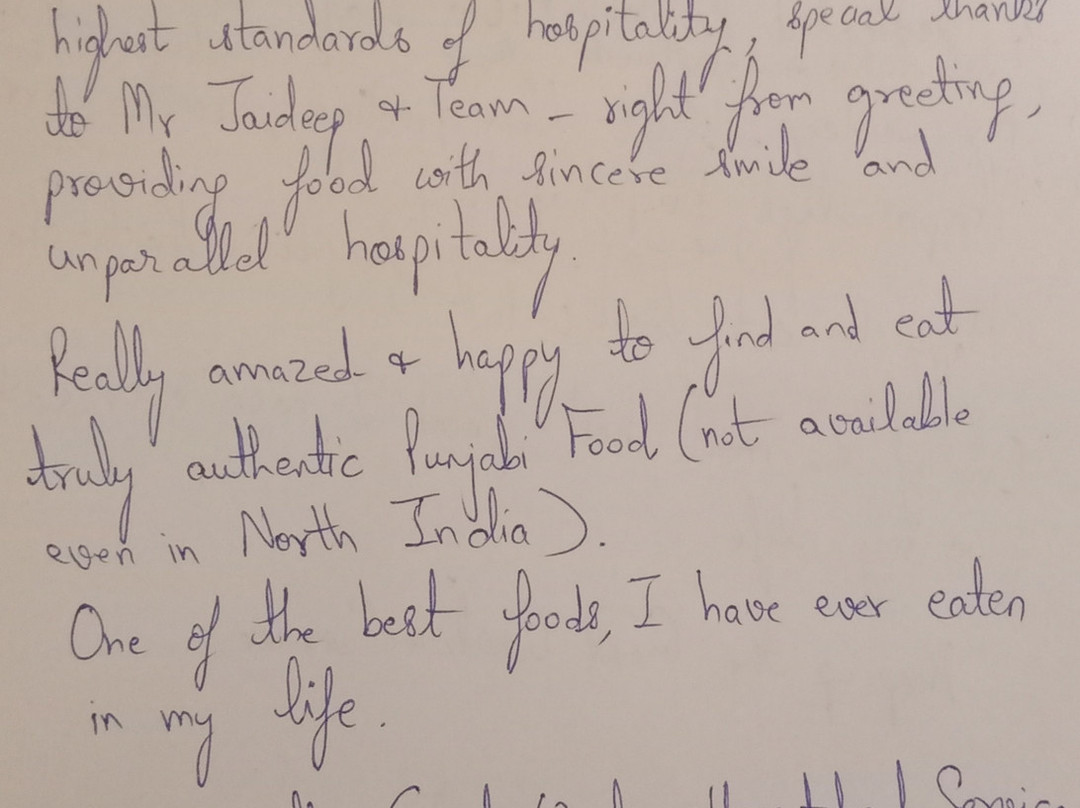 highest standards of hospitality, special thanks
to Mr Jaideep & Team - right from greeting,
providing food with sincere smile and
unparallel hospitality.
Really amazed & happy to find and eat
truly authentic Punjabi Food (not available
even in North India).
One of the best foods, I have ever eaten
in my life.